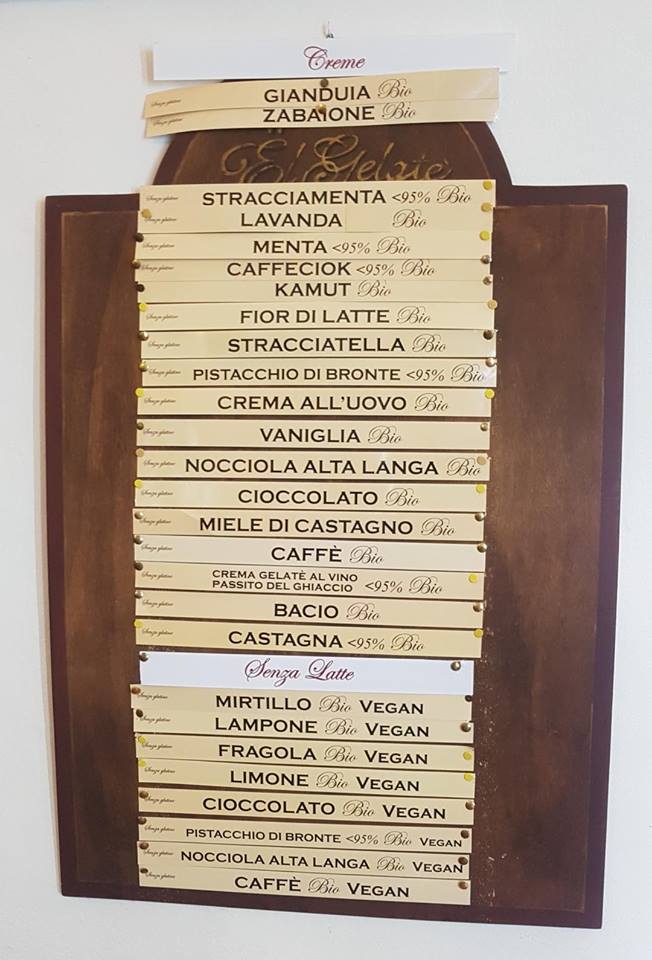 Creme
Senza glutine GIANDUIA Bio
Senza glutine ZABAIONE Bio
El Gelatè
Senza glutine STRACCIAMENTA <95% Bio
Senza glutine LAVANDA Bio
Senza glutine MENTA <95% Bio
Senza glutine CAFFECIOK <95% Bio
KAMUT Bio
Senza glutine FIOR DI LATTE Bio
Senza glutine STRACCIATELLA Bio
Senza glutine PISTACCHIO DI BRONTE <95% Bio
Senza glutine CREMA ALL'UOVO Bio
Senza glutine VANIGLIA Bio
Senza glutine NOCCIOLA ALTA LANGA Bio
Senza glutine CIOCCOLATO Bio
Senza glutine MIELE DI CASTAGNO Bio
Senza glutine CAFFÈ Bio
Senza glutine CREMA GELATÈ AL VINO
PASSITO DEL GHIACCIO <95% Bio
Senza glutine BACIO Bio
Senza glutine CASTAGNA <95% Bio
Senza Latte
Senza glutine MIRTILLO Bio VEGAN
Senza glutine LAMPONE Bio VEGAN
Senza glutine FRAGOLA Bio VEGAN
Senza glutine LIMONE Bio VEGAN
Senza glutine CIOCCOLATO Bio VEGAN
Senza glutine PISTACCHIO DI BRONTE <95% Bio VEGAN
Senza glutine NOCCIOLA ALTA LANGA Bio VEGAN
Senza glutine CAFFÈ Bio VEGAN